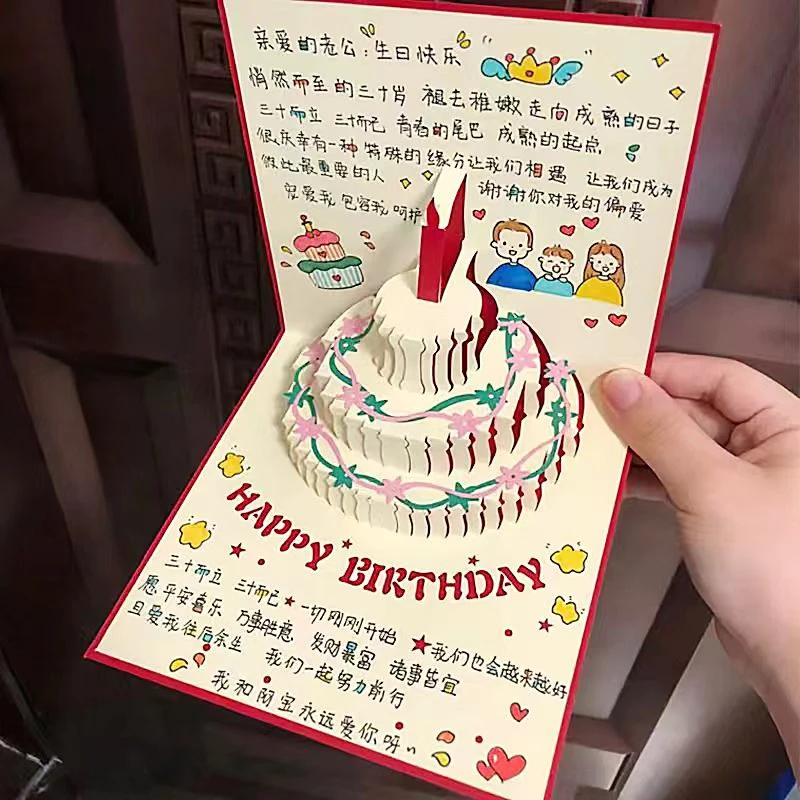 亲爱的老公：生日快乐
悄然而至的三十岁 褪去稚嫩 走向成熟的日子
三十而立 三十而已 青春的尾巴 成熟的起点
很庆幸有一种特殊的缘分让我们相遇 让我们成为
彼此最重要的人 谢谢你对我的偏爱
宠爱我 包容我 呵护
HAPPY BIRTHDAY
三十而立 三十而已 一切刚刚开始 我们也会越来越好
愿平安喜乐 万事胜意 发财暴富 诸事皆宜
且爱我往后余生 我们一起努力前行
我和阿宝永远爱你呀~